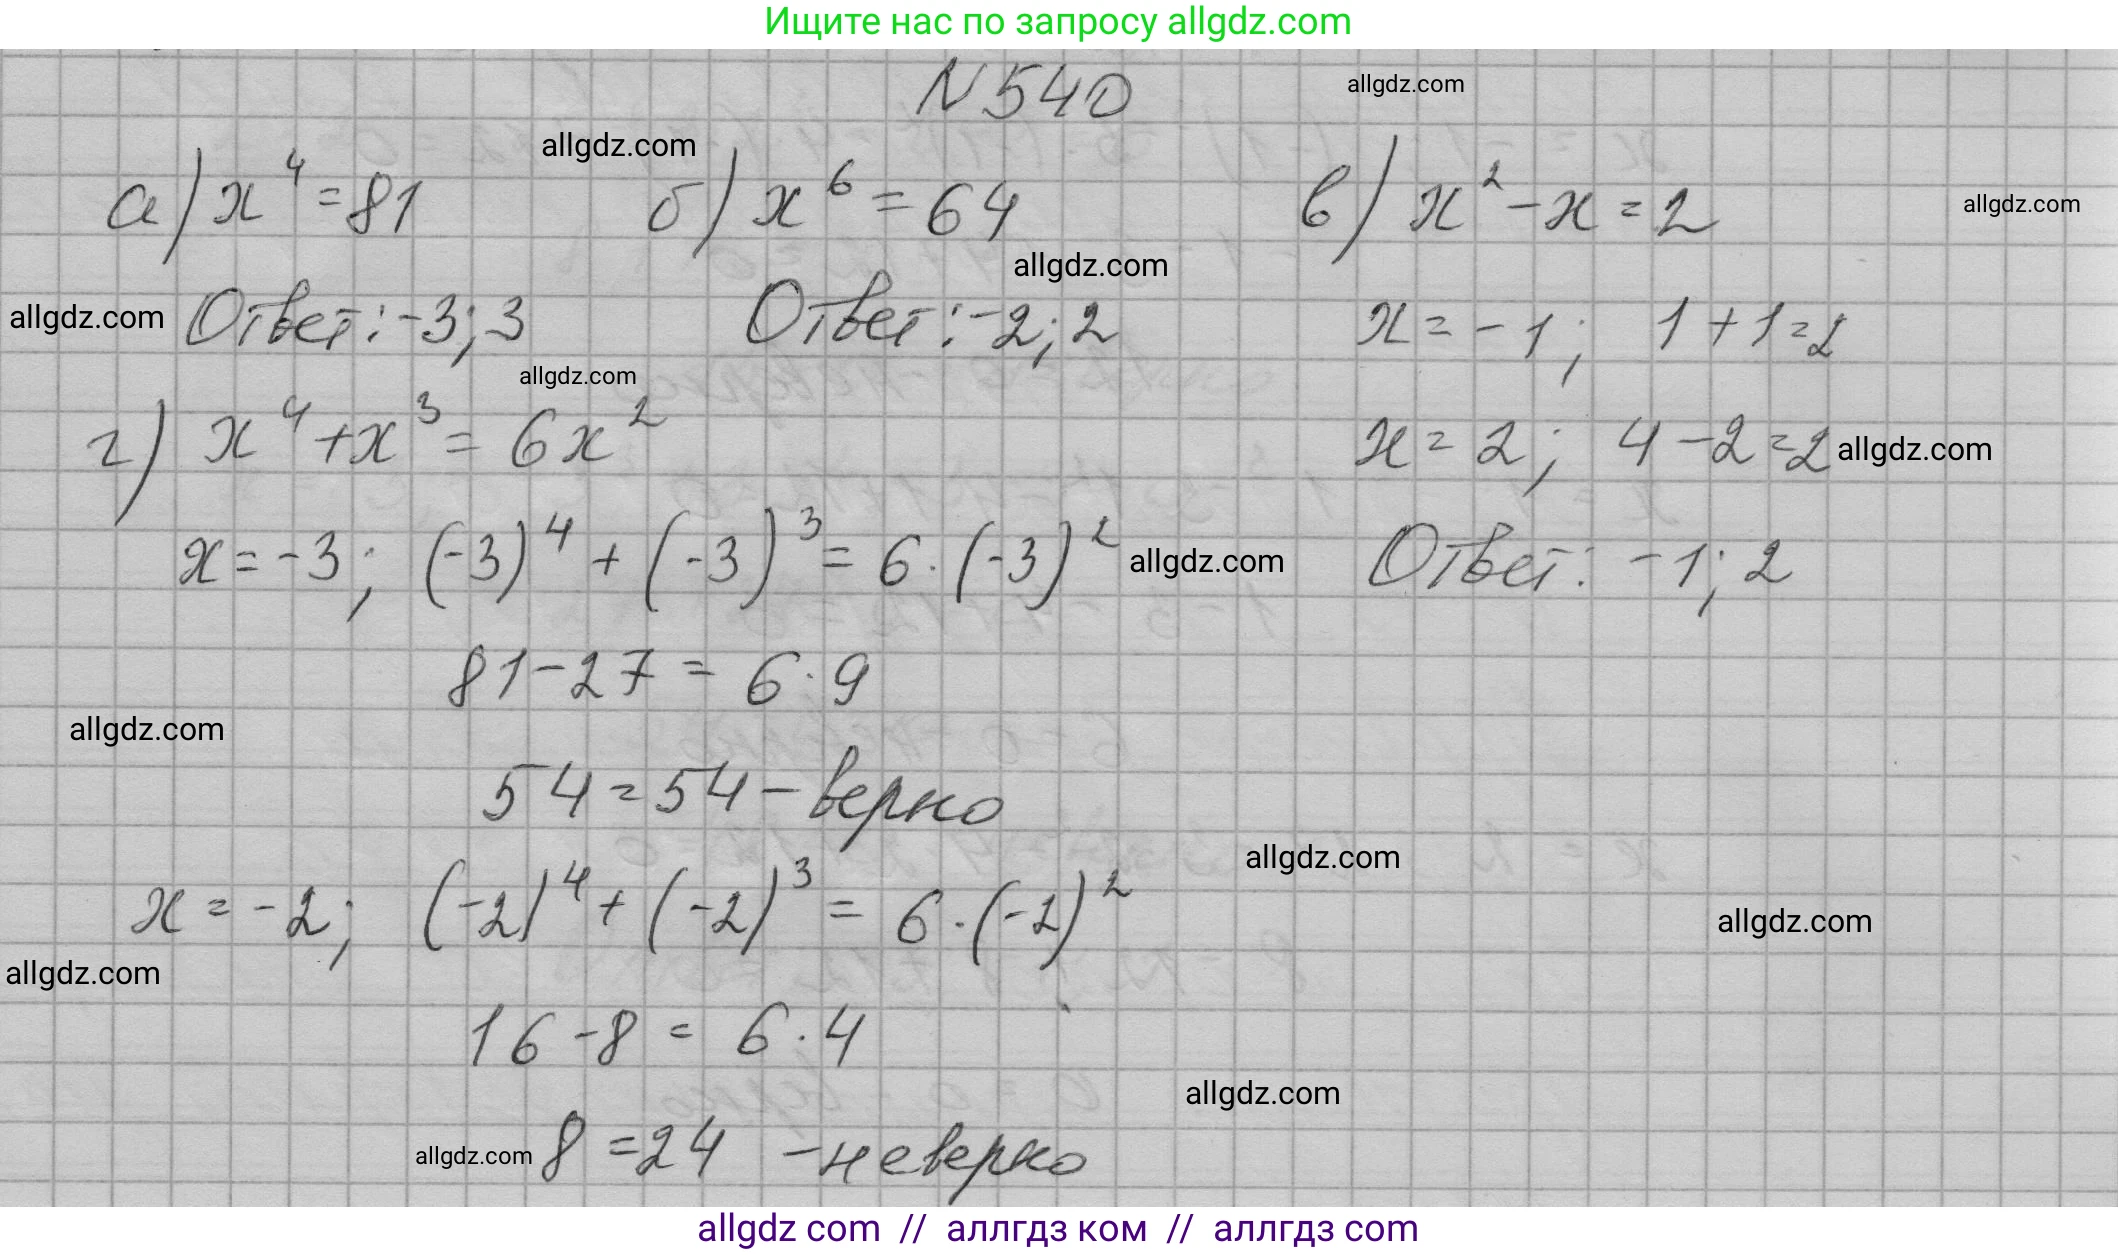 Ищите нас по запросу allgdz.com
N 540
allgdz.com
allgdz.com
а) x⁴ = 81
б) x⁶ = 64
в) x² - x = 2
allgdz.com
allgdz.com
allgdz.com
Ответ: -3; 3
Ответ: -2; 2
x = -1; 1 + 1 = 2
allgdz.com
г) x⁴ + x³ = 6x²
x = 2; 4 - 2 = 2
allgdz.com
x = -3; (-3)⁴ + (-3)³ = 6 · (-3)²
allgdz.com
Ответ: -1; 2
81 - 27 = 6 · 9
allgdz.com
54 = 54 - верно
allgdz.com
x = -2; (-2)⁴ + (-2)³ = 6 · (-2)²
allgdz.com
allgdz.com
16 - 8 = 6 · 4
allgdz.com
allgdz.com
8 = 24 - неверно
allgdz com // аллгдз ком // аллгдз com